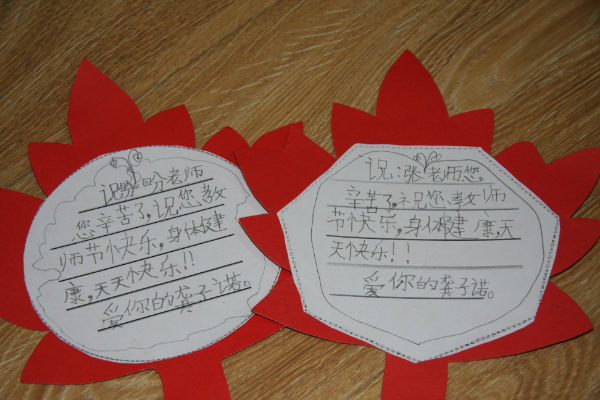 说盼盼老师
您辛苦了,说您教
师节快乐,身体健
康,天天快乐!!
爱你的龚子诺。
说:涨老师您。
辛苦了,祝您教师
节快乐,身体健康,天
天快乐!!
爱你的龚子诺。